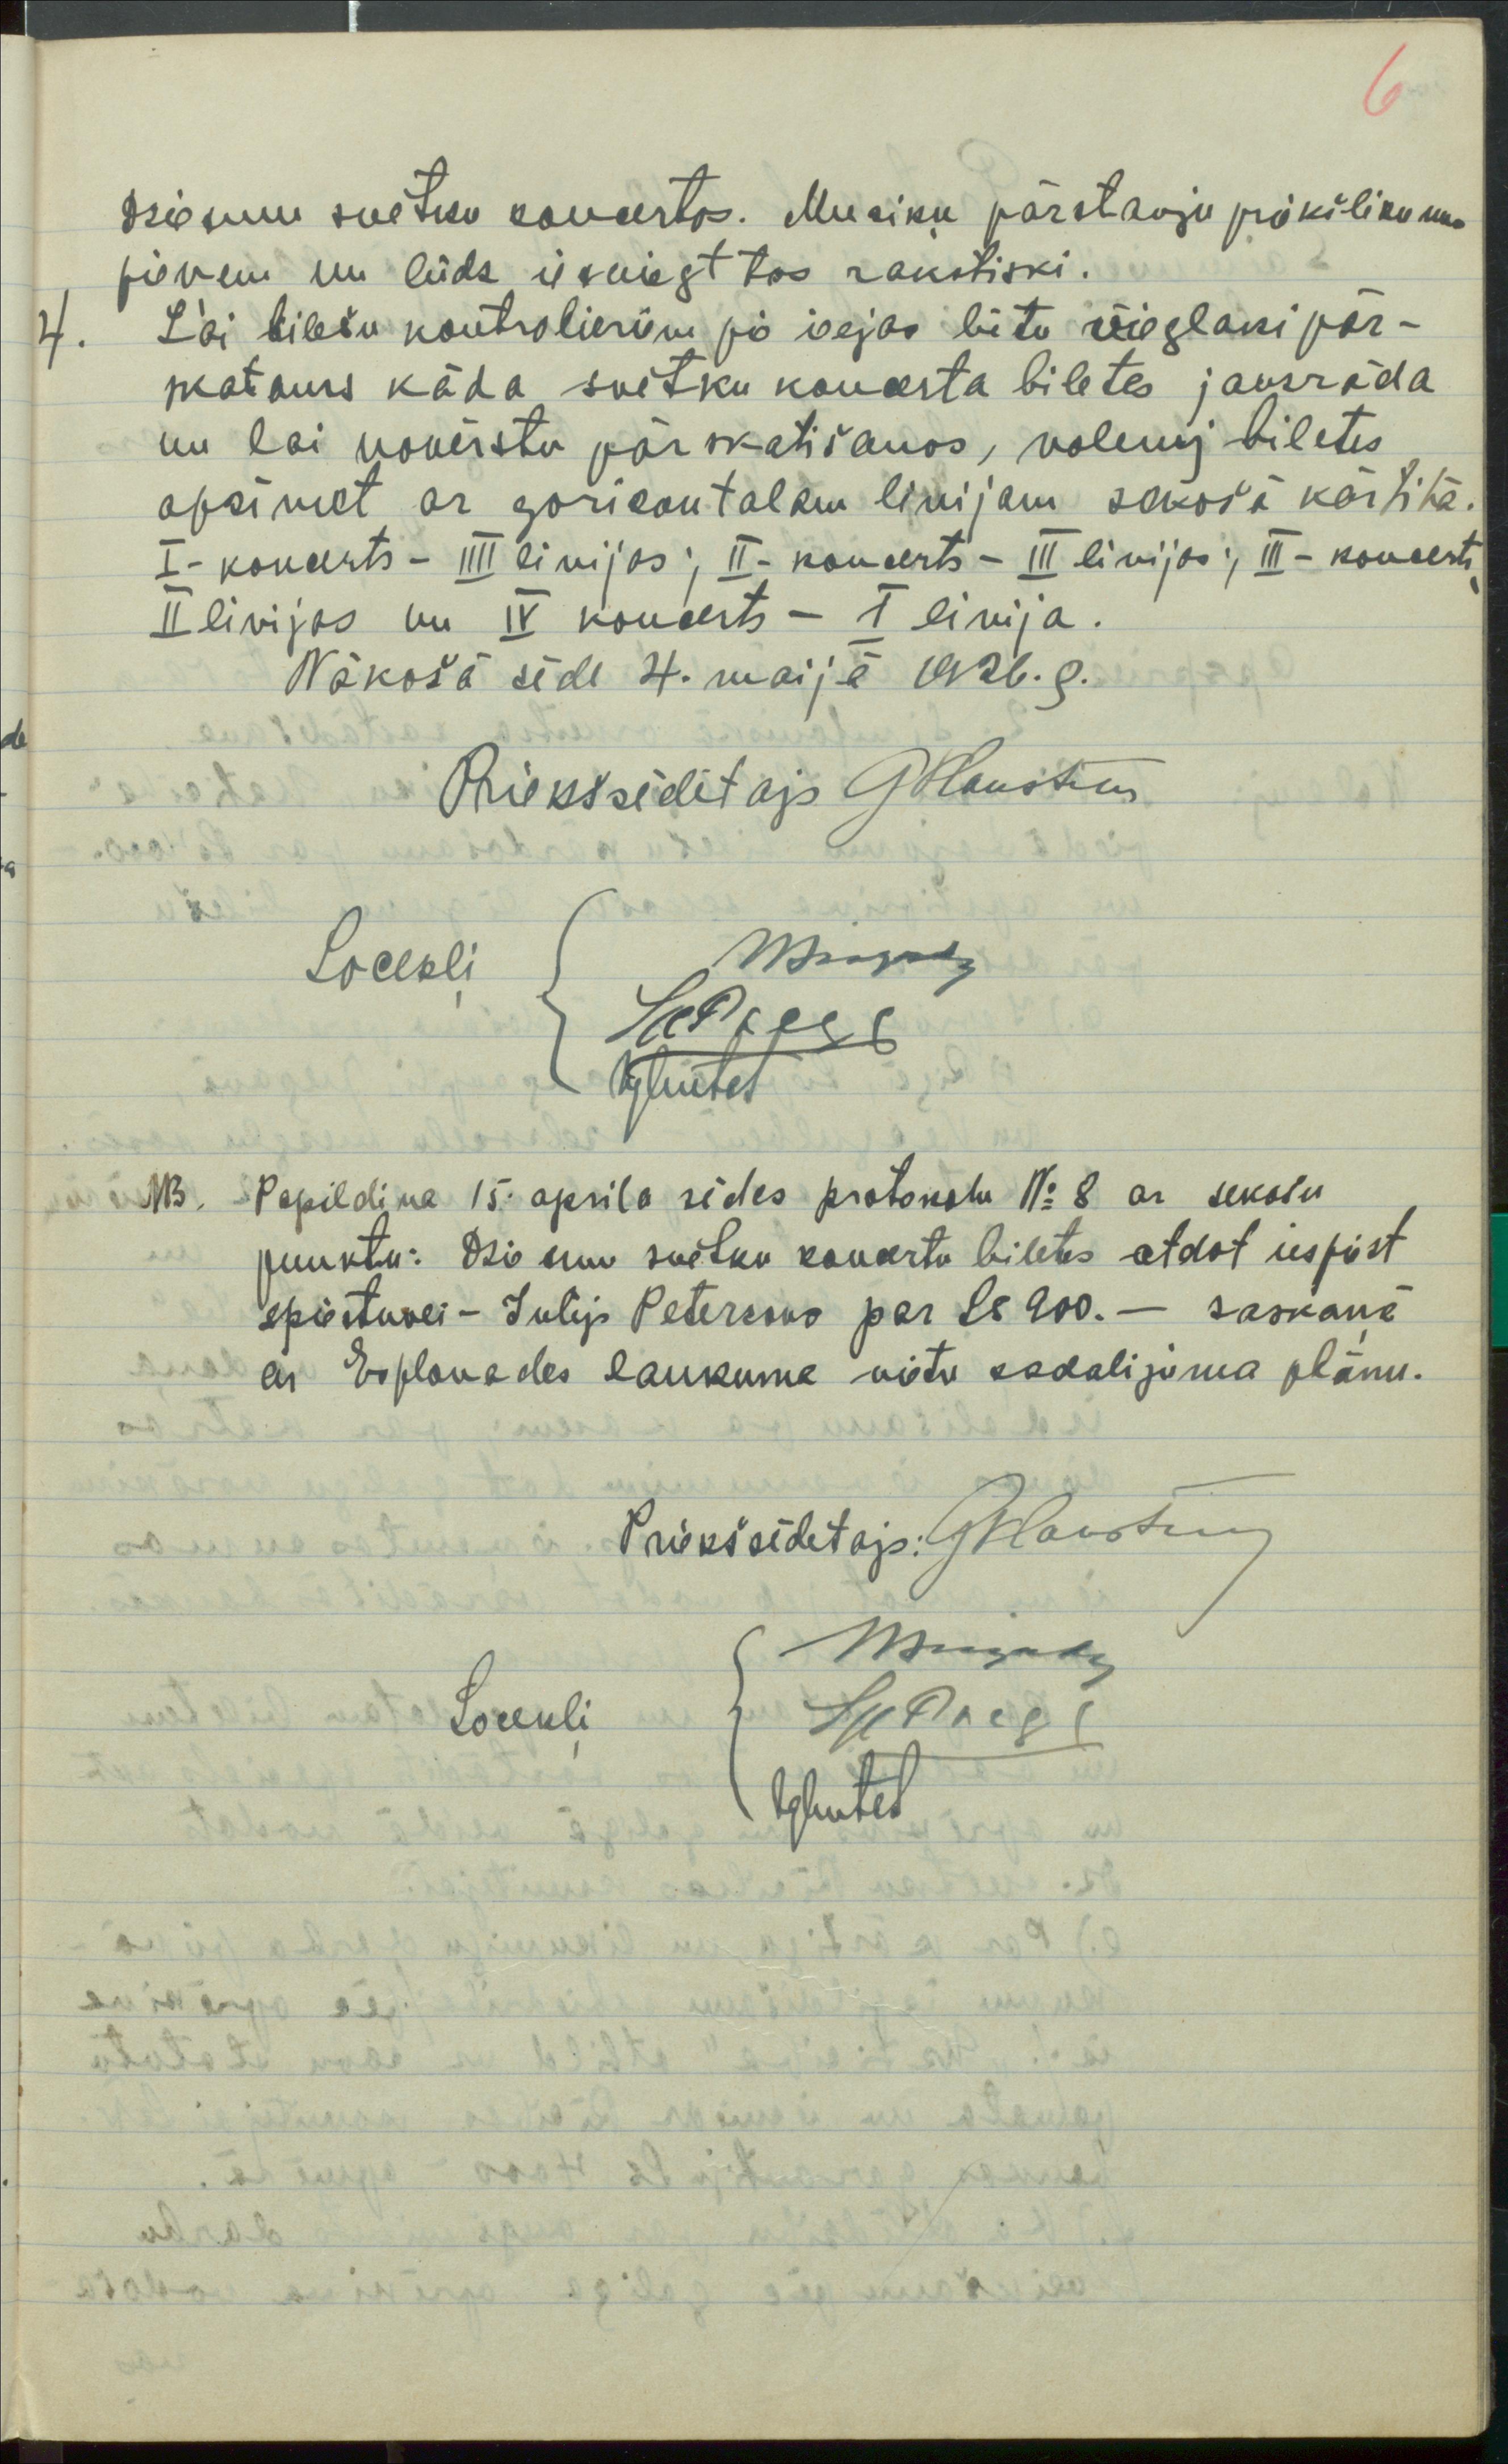 6
dziesmu svētku koncertos. Muziķu pārstāvju priekšlikumu
pieņem un lūdz iesniegt tos rakstiski.
4. Lai biļešu kontrolieriem pie ieejas būtu vieglaki pār-
skatams kāda svētku koncerta biletes jauzrāda
un lai novērstu pārskatišanos, nolemj biletes
apzimet ar gorizontalam linijam sekošā kārtibā.
I - koncerts - IIII linijas; II - koncerts - III linijas; III - koncerts
II linijas un IV koncerts - I linija.
Nākošā sēde 4. maijā 1926. g.
Priekšsēdētajs
Locekļi
NB. Papildina 15. aprila sēdes protokolu № 8 ar sekošu
punktu: Dziesmu svētku koncertu biletes atdot iespiest
spiestuvei - Julijs Petersons par Ls 900. — saskaņā
ar Esplanades laukuma vietu sadalijuma plānu.
Priekšsēdētajs:
Locekļi